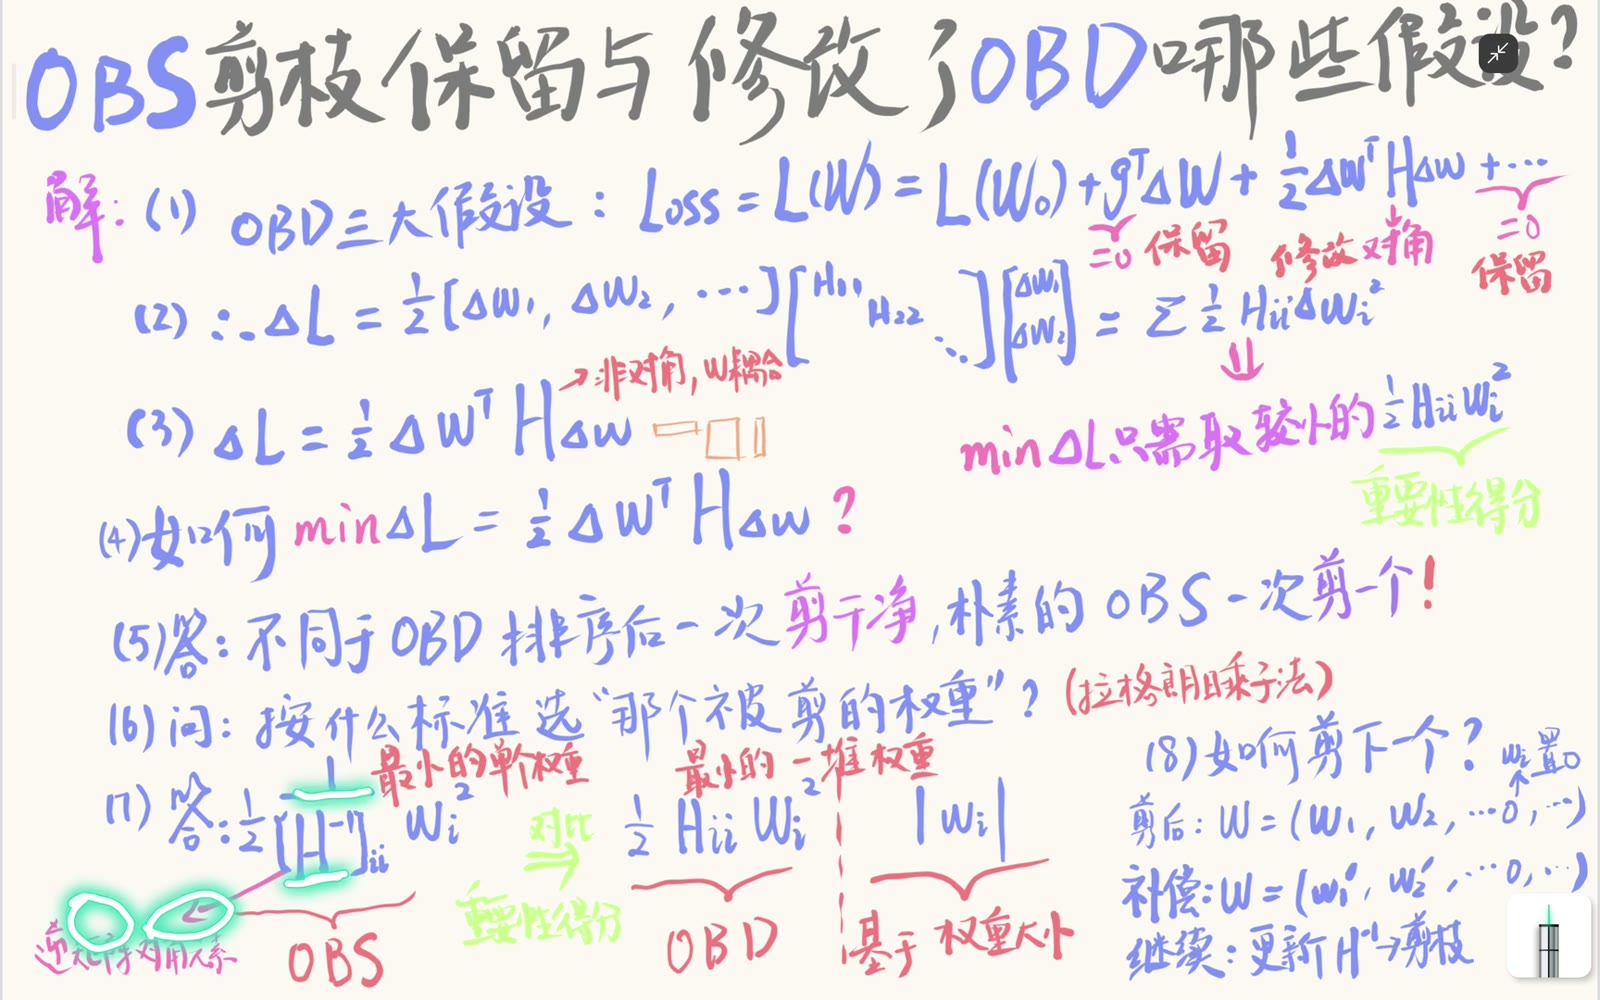 OBS剪枝保留与修改了OBD哪些假设?
解: (1) OBD三大假设: Loss = L(W) = L(W₀) + gᵀΔW + ½ΔWᵀHΔW + ···
=0 保留 修改对角 =0 保留
(2) ∴ ΔL = ½[ΔW₁, ΔW₂, ···] [H₁₁ H₂₂ ⋱] [ΔW₁ ΔW₂] = Σ ½ HᵢᵢΔWᵢ²
⇓
→非对角, W耦合
(3) ΔL = ½ ΔWᵀHΔW
minΔL只需取较小的 ½HᵢᵢWᵢ²
重要性得分
(4)如何 minΔL = ½ ΔWᵀHΔW ?
(5)答: 不同于OBD排序后一次剪干净, 朴素的OBS一次剪一个!
(6)问: 按什么标准选“那个被剪的权重”? (拉格朗日乘子法)
最小的单个权重 最小的一堆权重
(7) 答: ½ 1/[H⁻¹]ᵢᵢ Wᵢ² 对比 ⇒ ½ HᵢᵢWᵢ² |Wᵢ|
逆矩阵对角元素 OBS 重要性得分 OBD 基于权重大小
(8)如何剪下一个?
Wᵢ置0
剪后: W = (W₁, W₂, ···0, ···)
补偿: W = (W₁′, W₂′, ···0, ···)
继续: 更新H⁻¹→剪枝